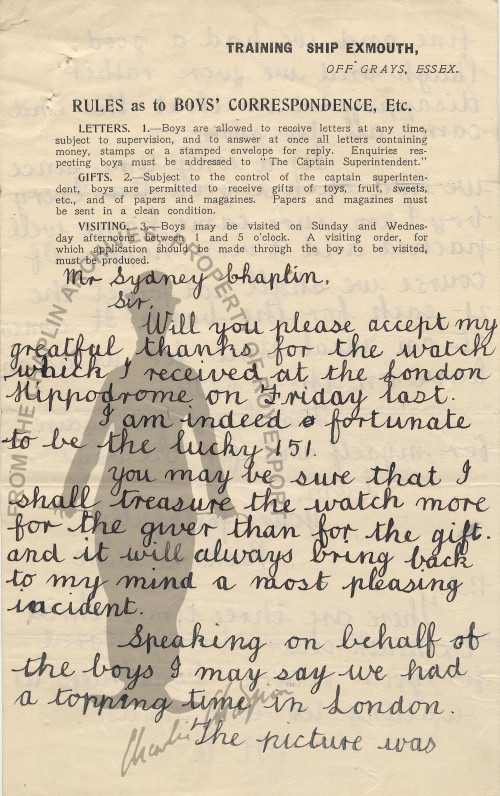 TRAINING SHIP EXMOUTH,
OFF GRAYS, ESSEX.
RULES as to BOYS' CORRESPONDENCE, Etc.
LETTERS. 1.—Boys are allowed to receive letters at any time,
subject to supervision, and to answer at once all letters containing
money, stamps or a stamped envelope for reply. Enquiries res-
pecting boys must be addressed to "The Captain Superintendent."
GIFTS. 2.—Subject to the control of the captain superinten-
dent, boys are permitted to receive gifts of toys, fruit, sweets,
etc., and of papers and magazines. Papers and magazines must
be sent in a clean condition.
VISITING. 3.—Boys may be visited on Sunday and Wednes-
day afternoons between 1 and 5 o'clock. A visiting order, for
which application should be made through the boy to be visited,
must be produced.
Mr Sydney Chaplin,
Sir,
Will you please accept my
gratful thanks for the watch
which I received at the London
Hippodrome on Friday last.
I am indeed fortunate
to be the lucky 151.
You may be sure that I
shall treasure the watch more
for the giver than for the gift.
and it will always bring back
to my mind a most pleasing
incident.
Speaking on behalf of
the boys I may say we had
a topping time in London.
The picture was
FROM THE CHAPLIN ARCHIVES. PROPERTY OF ROY EXPORT
Charlie Chaplin